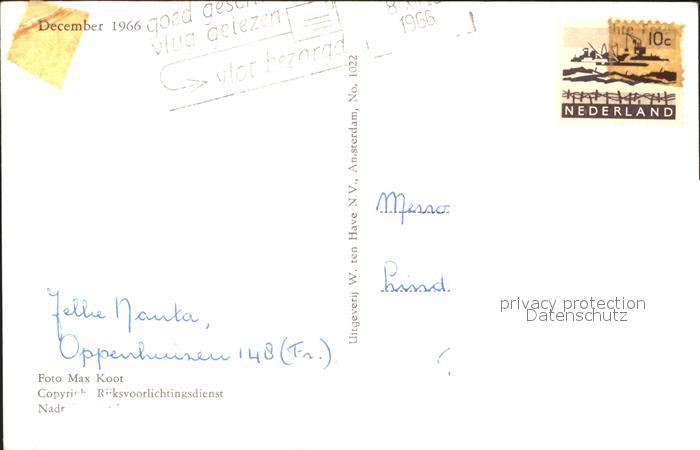 December 1966
goed gesch
vlug gelezen
vlot bezorgd
8
1966
10c
NEDERLAND
Uitgeverij W. ten Have N.V., Amsterdam, No. 1022
Messo
Lind.
privacy protection
Datenschutz
Jelke Nauta,
Oppenhuizen 148 (Fr.)
Foto Max Koot
Copyrich Rijksvoorlichtingsdienst
Nadr